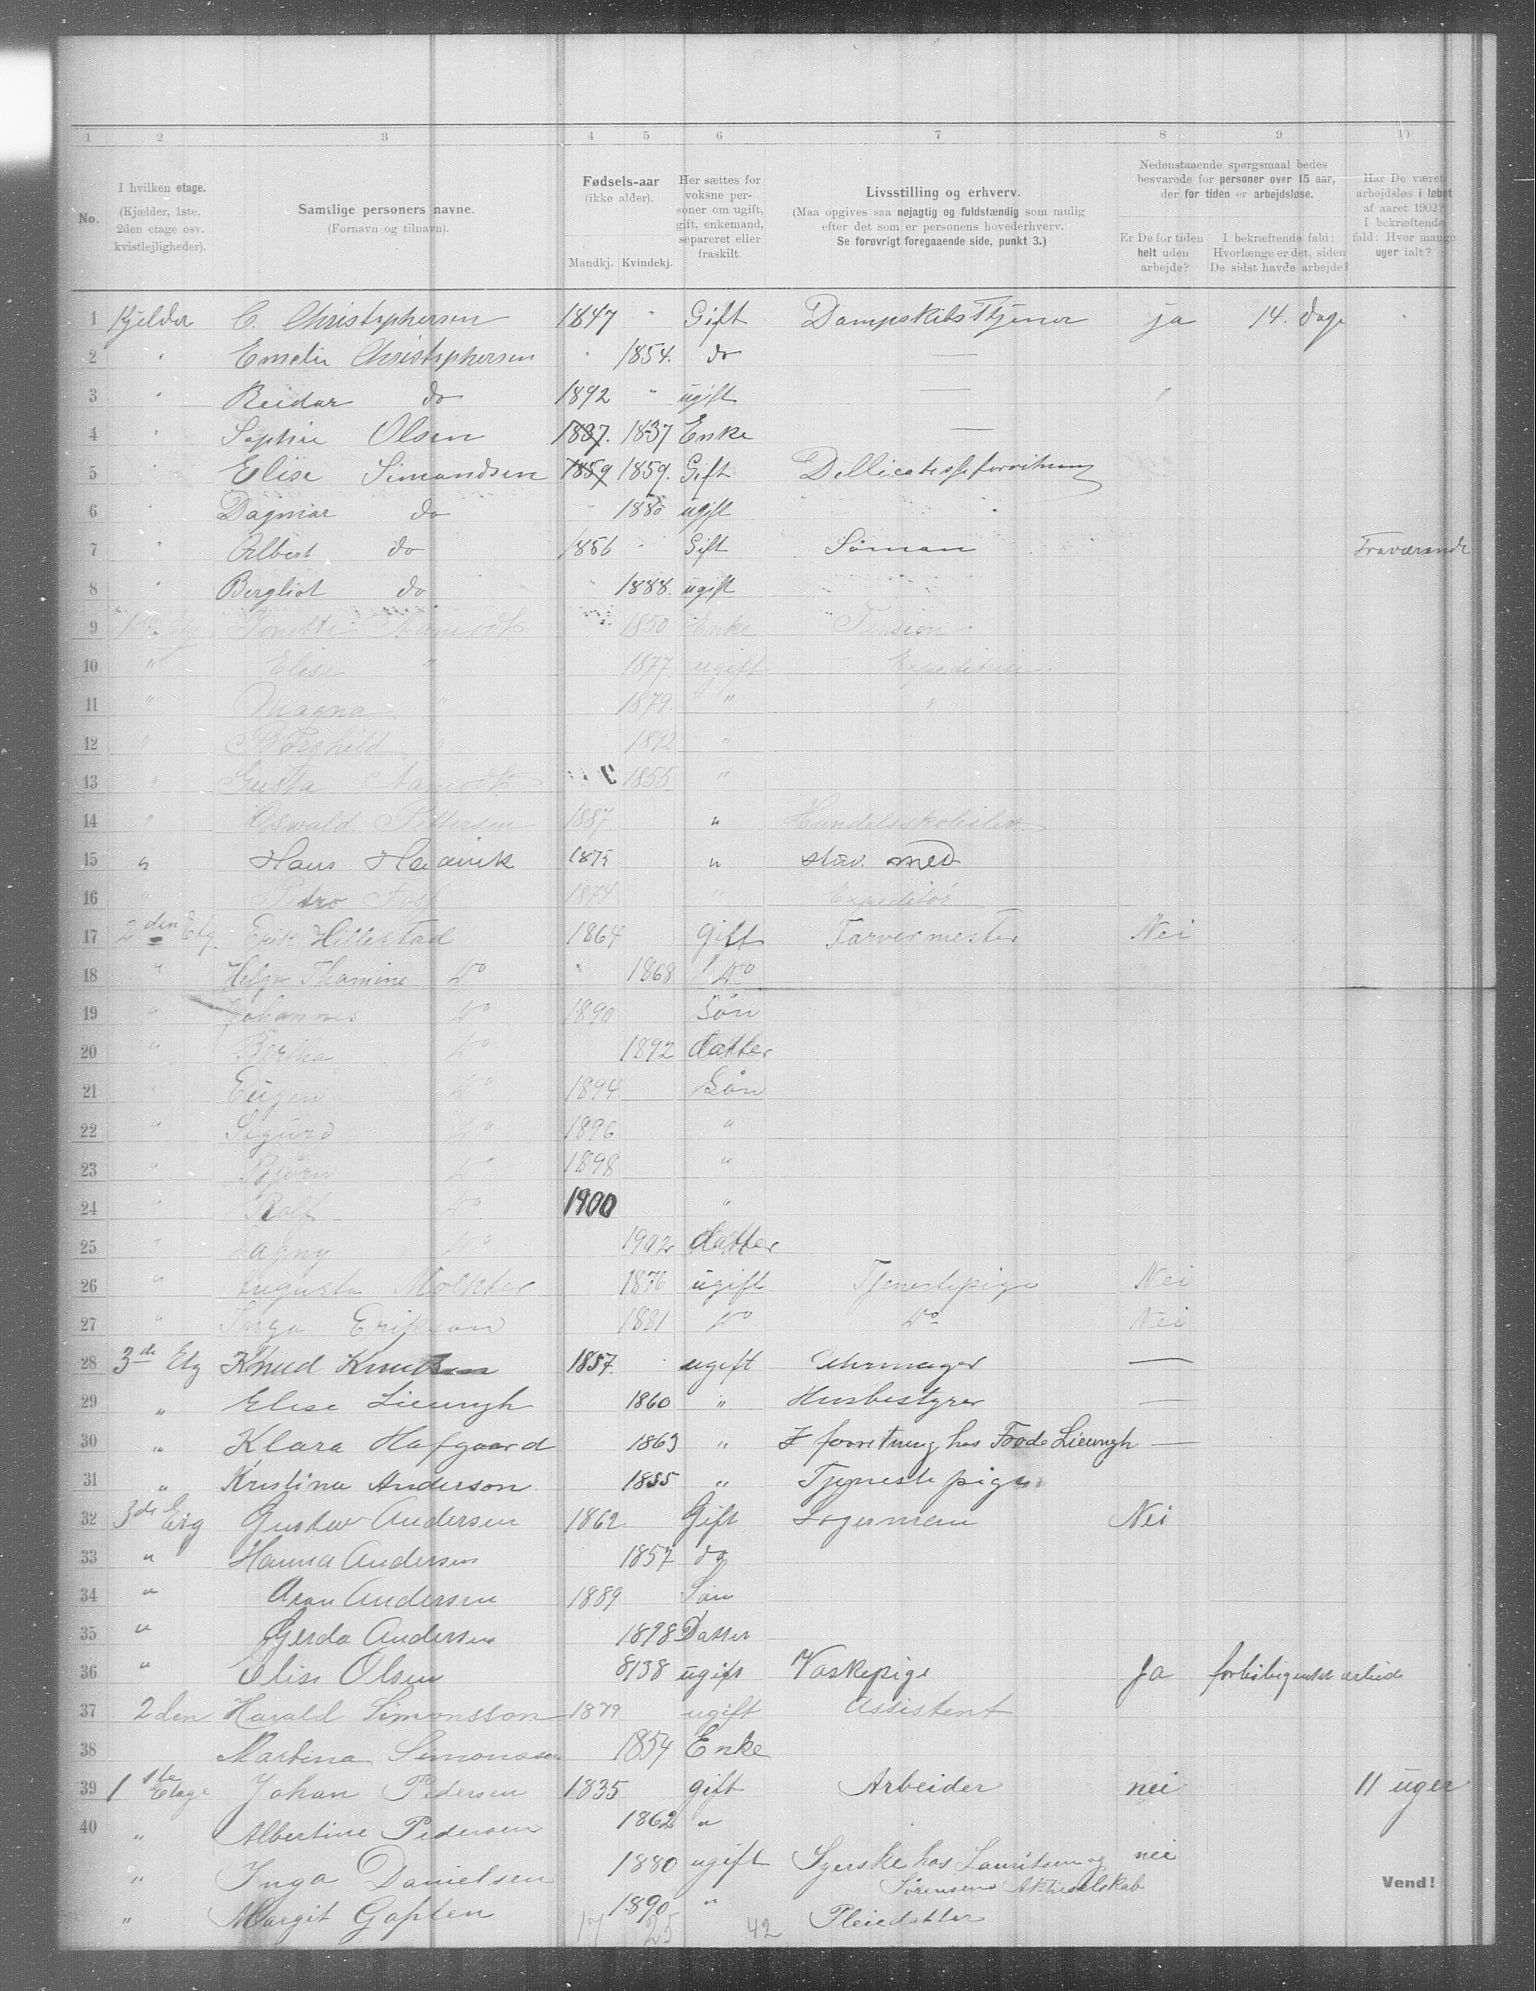 1 2 3 4 5 6 7 8 9 10
No. | I hvilken etage. (Kjælder, 1ste, 2den etage osv. kvistlejligheder). | Samtlige personers navne. (Fornavn og tilnavn). | Fødsels-aar (ikke alder). Mandkj. Kvindekj. | Her sættes for voksne personer om ugift, gift, enkemand, separeret eller fraskilt. | Livsstilling og erhverv. (Maa opgives saa nøjagtig og fuldstændig som mulig efter det som er personens hovederhverv. Se forøvrigt foregaaende side, punkt 3.) | Nedenstaaende spørgsmaal bedes besvarede for personer over 15 aar, der for tiden er arbejdsløse. Er De for tiden helt uden arbejde? | I bekræftende fald: Hvorlænge er det, siden De sidst havde arbejde? | Har De været arbejdsløs i løbet af aaret 1902? I bekræftende fald: Hvor mange uger ialt?
1 Kjelder C. Christophersen 1847 " Gift Dampskibs Tjener ja 14. dage
2 " Emelie Christophersen " 1854. do —
3 " Reidar do 1892 " ugift —
4 " Sophie Olsen 1837. 1837 Enke —
5 " Elise Simondsen 1859 1859. Gift Dellicatesseforretning
6 " Dagmar do " 1880 ugift "
7 " Albert do 1856 " Gift Søman Fraværende
8 " Bergliot do " 1888. ugift
9 1ste Etg 1850 Enke Pension
10 " Elise " 1877 ugift Expeditrice
11 " Magna " 1879. " "
12 " Borghild " 1892 "
13 " Gusta 1855 "
14 " Oswald Pettersen 1887 " Handelsskoleelev
15 " Hans 1875 " stud. med
16 " Petro 1874 " Expeditør
17 2den Etg. Erik Hillestad 1864 Gift Farvermester Nei
18 " Helga Thomine Do " 1868 Do
19 " Johannes Do 1890 Søn
20 " Bertha Do 1892 datter
21 " Eugen Do 1894 Søn
22 " Sigurd Do 1896 "
23 " Bjørn Do 1898 "
24 " Rolf Do 1900 "
25 " Dagny Do 1902 datter
26 " Augusta 1876 ugift Tjenestepige Nei
27 " Inga Erikson 1881 Do Do Nei
28 3de Etg Knud Knudsen 1857. " ugift Uhrmager —
29 " Elise Lieungh 1860 " Husbestyrer —
30 " Klara Hafgaard 1863 " I forretning hos Frode Lieungh —
31 " Kristina Anderson 1855 " Tjenestepige
32 3de Etg Gustav Andersen 1862 Gift Lagerman Nei
33 " Hanna Andersen 1857 do
34 " Aron Andersen 1889 Søn
35 " Gerda Andersen 1898 Datter
36 " Elise Olsen 8138 ugift Vaskepige Ja
37 2den Harald Simonsson 1879 ugift Assistent
38 Martina Simonsen 1854 Enke
39 1 1te Etage Johan Pedersen 1835 gift Arbeider nei 11 uger
40 " Albertine Pedersen 1862 "
" Inga Danielsen 1880 ugift Syerske hos Lauritsen og nei
Sørensens Aktieselskab
" Margit 1890 " Pleiedatter
17 25 42
Vend!